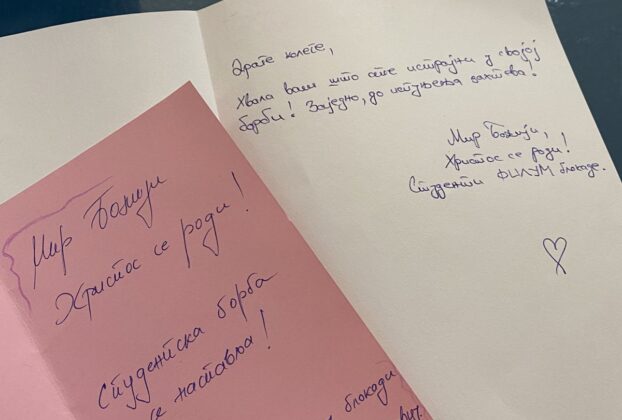 Драге колеге,
Хвала вам што сте истрајни у својој
борби! Заједно, до испуњења захтева!
Мир Божији,
Христос се роди!
Студенти ФИЛУМ блокаде.
Мир Божији
Христос се роди!
Студентска борба
се наставља!
блокади